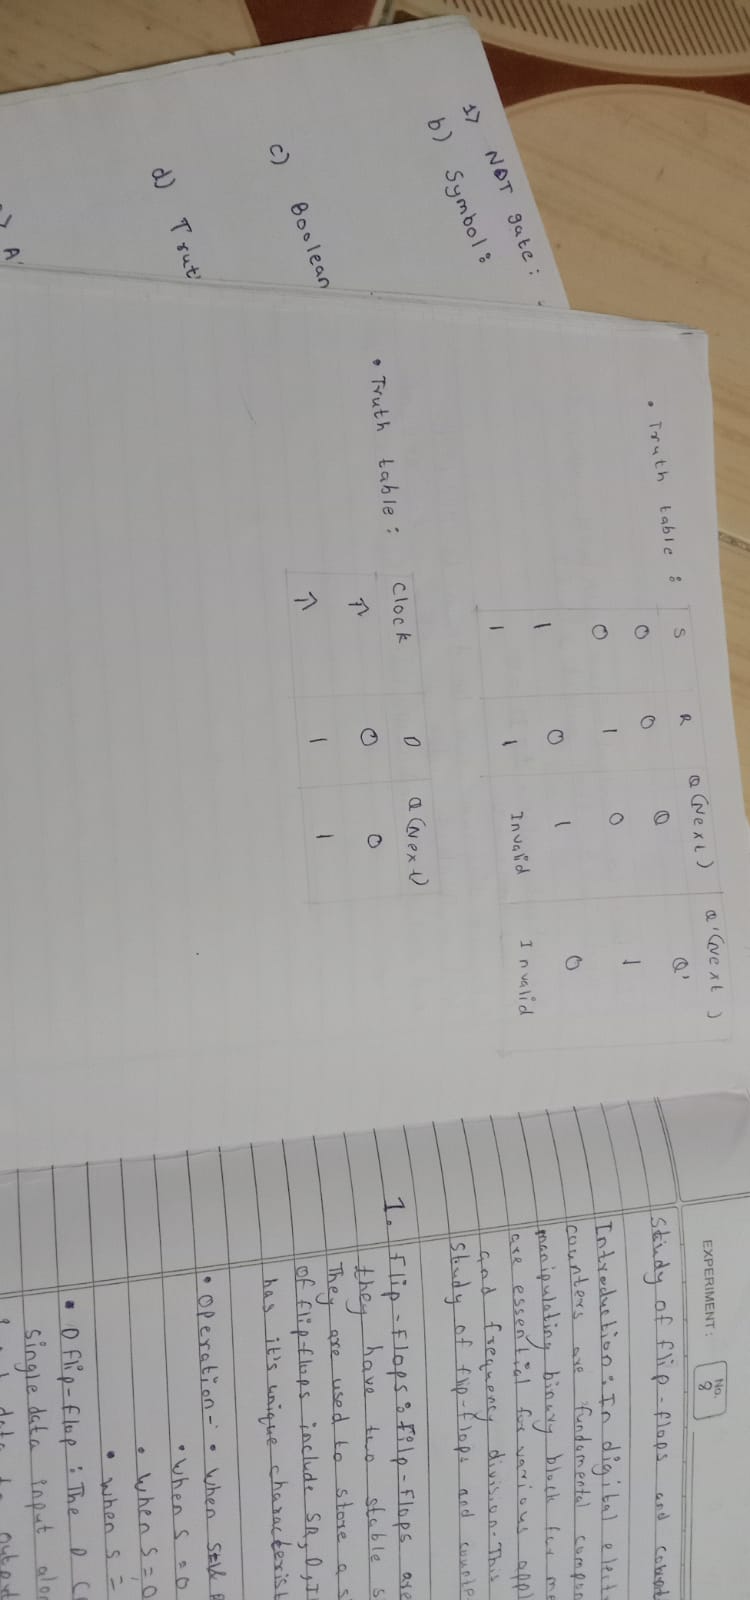 1> NOT gate :
b) Symbol :
c) Boolean
d) Trut
A
• Truth table :
S R Q(Next) Q'(Next)
0 0 Q Q'
0 1 0 1
1 0 1 0
1 1 Invalid Invalid
• Truth table :
Clock D Q(Next)
↑ 0 0
↑ 1 1
EXPERIMENT : No. 8
Study of flip-flops and count
Introduction : In digital elect
counters are fundamental compon
manipulating binary block for me
are essential for various appl
and frequency division. This
study of flip-flops and counte
1. flip-flops : flip-flops are
they have two stable s
They are used to store a s
of flip-flops include SR, D, J
has it's unique characterist
• Operation - • when
• when S = 0
• when S = 0
• when S =
• D flip-flop : The D
single data input alon